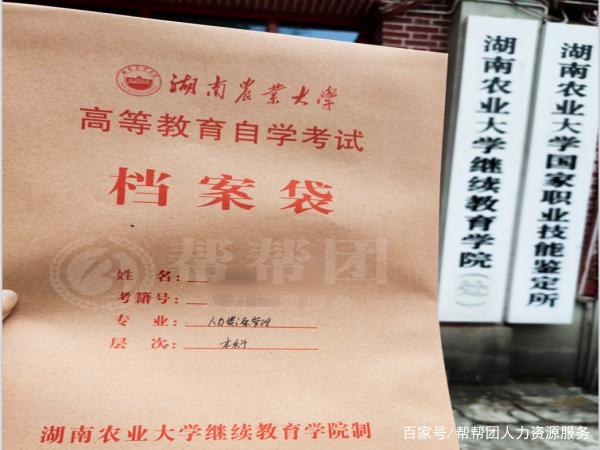 湖南农业大学
高等教育自学考试
档案袋
姓名:
考籍号:
专业: 人力资源管理
层次: 本科
湖南农业大学继续教育学院制
湖南农业大学继续教育学院(处)
湖南农业大学国家职业技能鉴定所
帮帮团
人力资源服务
百家号/帮帮团人力资源服务